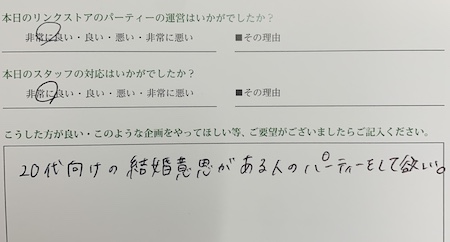 本日のリンクストアのパーティーの運営はいかがでしたか？
非常に良い・良い・悪い・非常に悪い ■その理由
本日のスタッフの対応はいかがでしたか？
非常に良い・良い・悪い・非常に悪い ■その理由
こうした方が良い・このような企画をやってほしい等、ご要望がございましたらご記入ください。
20代向けの結婚意思がある人のパーティーをして欲しい。